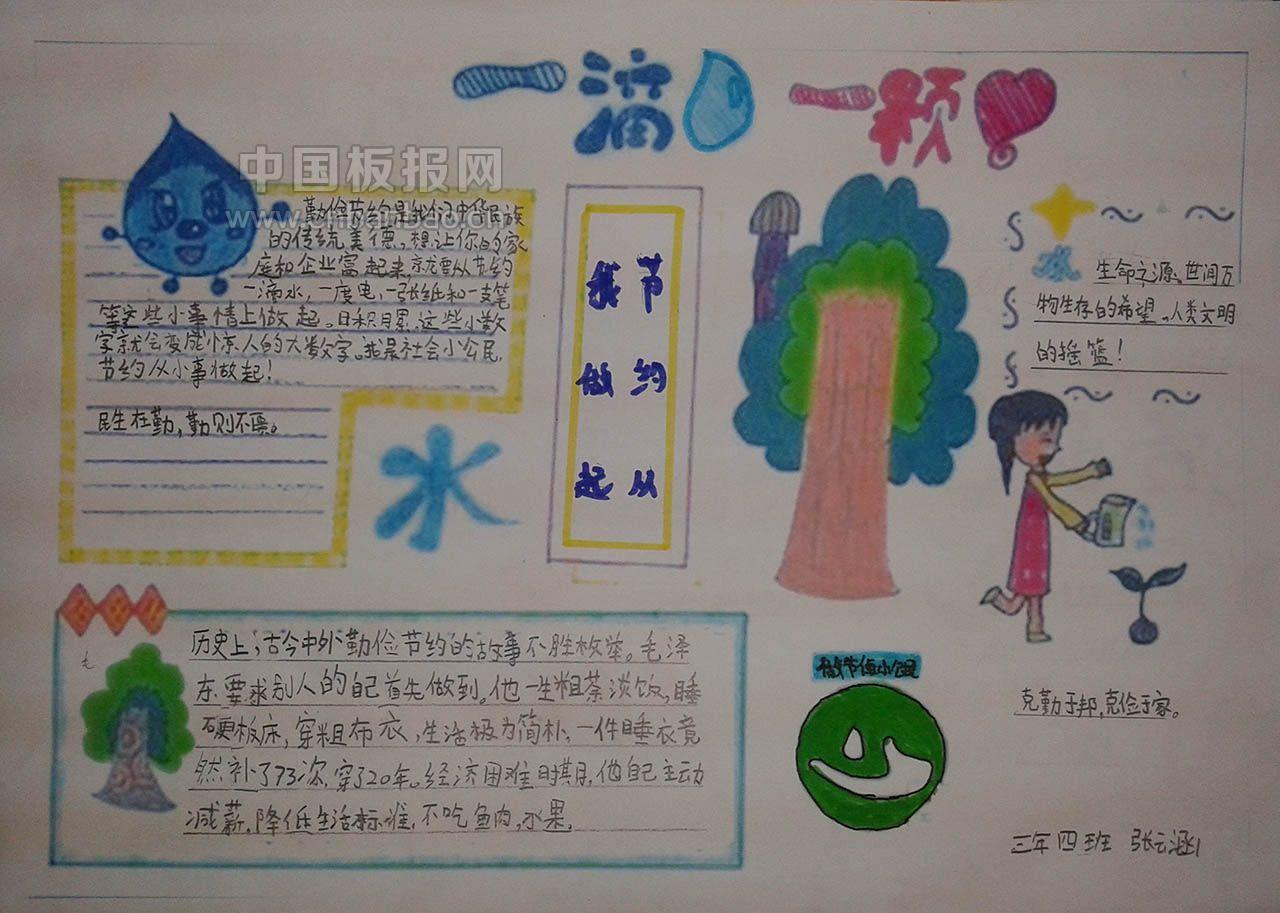 一滴 一颗
中国板报网
勤俭节约是我们中华民族
的传统美德，想让你的家
庭和企业富起来，就要从节约
一滴水，一度电，一张纸和一支笔
等这些小事情上做起。日积月累，这些小数
字就会变成惊人的大数字。我是社会小公民，
节约从小事做起！
民生在勤，勤则不匮。
水
节约从
我做起
水 生命之源、世间万
物生存的希望。人类文明
的摇篮！
毛
历史上，古今中外勤俭节约的故事不胜枚举。毛泽
东要求别人的自己首先做到。他一生粗茶淡饭，睡
硬板床，穿粗布衣，生活极为简朴，一件睡衣竟
然补了73次，穿了20年。经济困难时期，他自己主动
减薪，降低生活标准，不吃鱼肉，水果，
做节值小公民
克勤于邦，克俭于家。
三年四班 张云涵